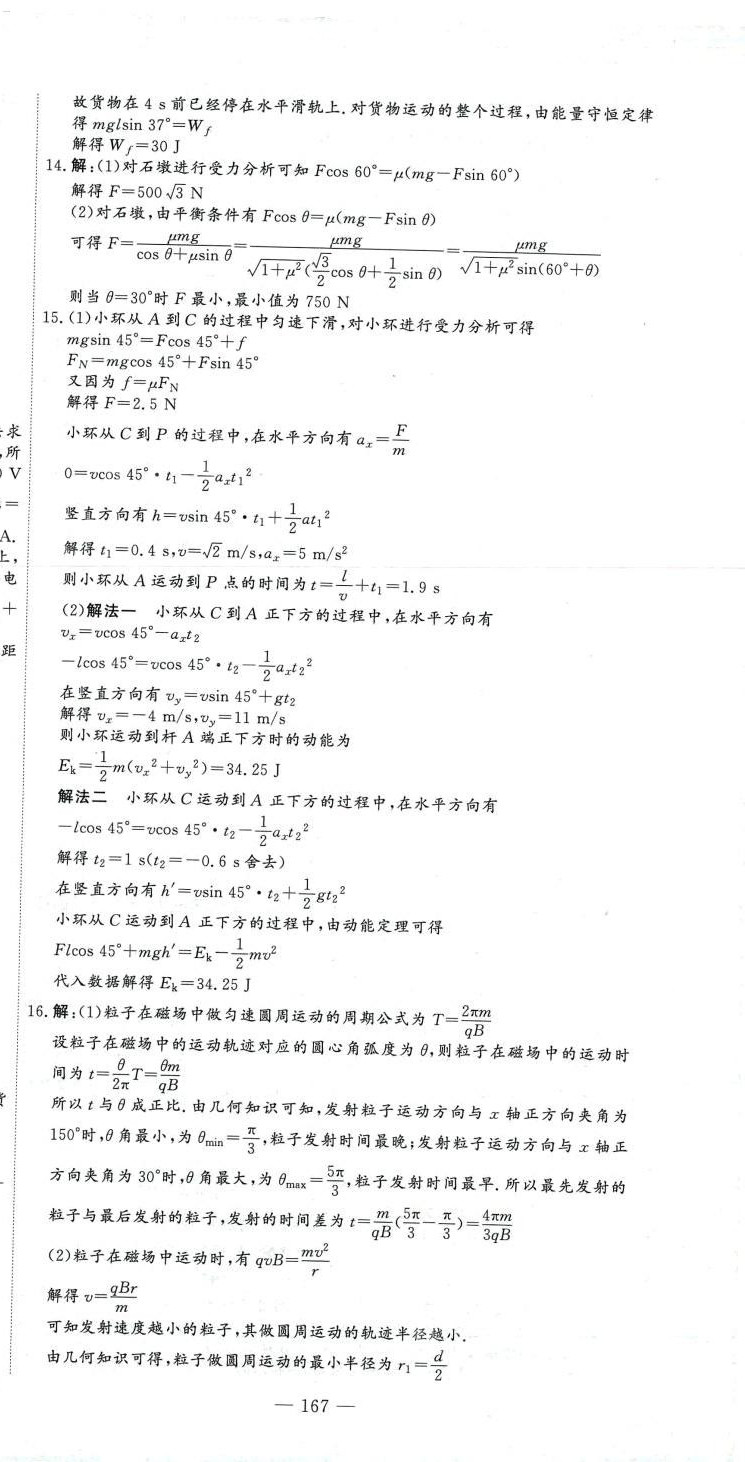 故货物在 4 s 前已经停在水平滑轨上. 对货物运动的整个过程,由能量守恒定律
得 mglsin 37°=W_f
解得 W_f=30 J
14. 解:(1)对石墩进行受力分析可知 Fcos 60°=μ(mg-Fsin 60°)
解得 F=500√3 N
(2)对石墩,由平衡条件有 Fcos θ=μ(mg-Fsin θ)
可得 F=μmg/(cos θ+μsin θ)=μmg/(√(1+μ²)(√3/2 cos θ+1/2 sin θ))=μmg/(√(1+μ²)sin(60°+θ))
则当 θ=30°时 F 最小,最小值为 750 N
15. (1)小环从 A 到 C 的过程中匀速下滑,对小环进行受力分析可得
mgsin 45°=Fcos 45°+f
F_N=mgcos 45°+Fsin 45°
又因为 f=μF_N
解得 F=2.5 N
小环从 C 到 P 的过程中,在水平方向有 a_x=F/m
0=vcos 45°·t₁-1/2 a_x t₁²
竖直方向有 h=vsin 45°·t₁+1/2 at₁²
解得 t₁=0.4 s,v=√2 m/s,a_x=5 m/s²
则小环从 A 运动到 P 点的时间为 t=l/v+t₁=1.9 s
(2)解法一 小环从 C 到 A 正下方的过程中,在水平方向有
v_x=vcos 45°-a_x t₂
-lcos 45°=vcos 45°·t₂-1/2 a_x t₂²
在竖直方向有 v_y=vsin 45°+gt₂
解得 v_x=-4 m/s,v_y=11 m/s
则小环运动到杆 A 端正下方时的动能为
E_k=1/2 m(v_x²+v_y²)=34.25 J
解法二 小环从 C 运动到 A 正下方的过程中,在水平方向有
-lcos 45°=vcos 45°·t₂-1/2 a_x t₂²
解得 t₂=1 s(t₂=-0.6 s 舍去)
在竖直方向有 h′=vsin 45°·t₂+1/2 gt₂²
小环从 C 运动到 A 正下方的过程中,由动能定理可得
Flcos 45°+mgh′=E_k-1/2 mv²
代入数据解得 E_k=34.25 J
16. 解:(1)粒子在磁场中做匀速圆周运动的周期公式为 T=2πm/qB
设粒子在磁场中的运动轨迹对应的圆心角弧度为 θ,则粒子在磁场中的运动时
间为 t=θ/2π T=θm/qB
所以 t 与 θ 成正比. 由几何知识可知,发射粒子运动方向与 x 轴正方向夹角为
150°时,θ 角最小,为 θ_min=π/3,粒子发射时间最晚;发射粒子运动方向与 x 轴正
方向夹角为 30°时,θ 角最大,为 θ_max=5π/3,粒子发射时间最早. 所以最先发射的
粒子与最后发射的粒子,发射的时间差为 t=m/qB(5π/3-π/3)=4πm/3qB
(2)粒子在磁场中运动时,有 qvB=mv²/r
解得 v=qBr/m
可知发射速度越小的粒子,其做圆周运动的轨迹半径越小.
由几何知识可得,粒子做圆周运动的最小半径为 r₁=d/2
— 167 —
求
,所
V
=
A.
上,
电
+
距